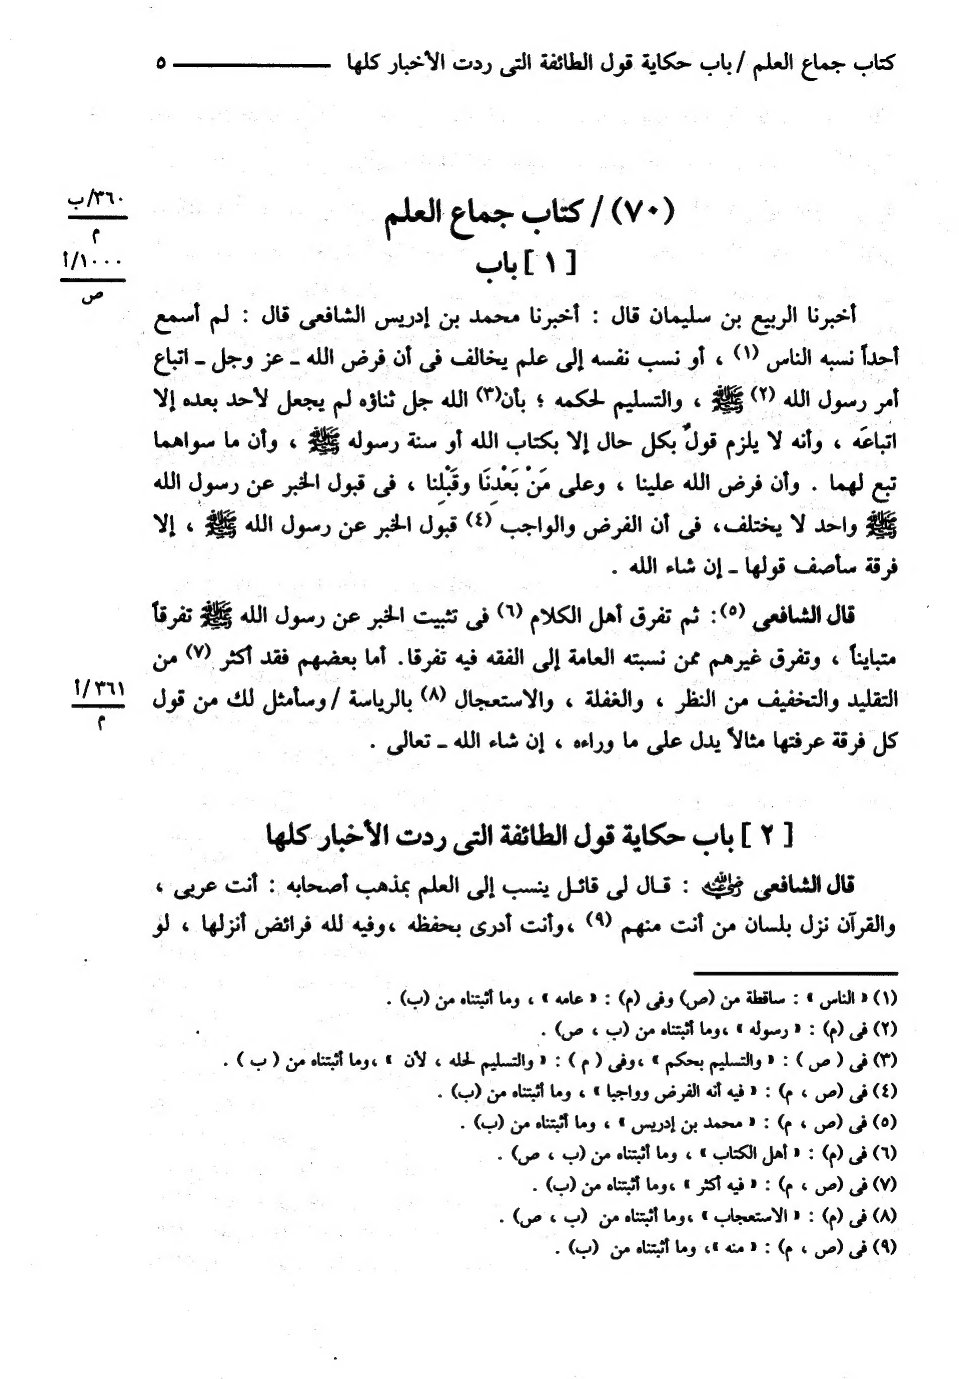 كتاب جماع العلم / باب حكاية قول الطائفة التى ردت الأخبار كلها ــــــــــــ ٥
(٧٠) / كتاب جماع العلم
٣٦٠/ب
م
[ ١ ] باب
١٠٠٠/أ
ص
أخبرنا الربيع بن سليمان قال : أخبرنا محمد بن إدريس الشافعى قال : لم أسمع
أحداً نسبه الناس (١) ، أو نسب نفسه إلى علم يخالف فى أن فرض الله ـ عز وجل ـ اتباع
أمر رسول الله (٢) ﷺ ، والتسليم لحكمه ؛ بأن(٣) الله جل ثناؤه لم يجعل لأحد بعده إلا
اتباعَه ، وأنه لا يلزم قولٌ بكل حال إلا بكتاب الله أو سنة رسوله ﷺ ، وأن ما سواهما
تبع لهما . وأن فرض الله علينا ، وعلى مَنْ بَعْدنَا وقَبْلِنا ، فى قبول الخبر عن رسول الله
ﷺ واحد لا يختلف، فى أن الفرض والواجب (٤) قبول الخبر عن رسول الله ﷺ ، إلا
فرقة سأصف قولها ـ إن شاء الله .
قال الشافعى (٥): ثم تفرق أهل الكلام (٦) فى تثبيت الخبر عن رسول الله ﷺ تفرقاً
متبايناً ، وتفرق غيرهم ممن نسبته العامة إلى الفقه فيه تفرقا. أما بعضهم فقد أكثر (٧) من
التقليد والتخفيف من النظر ، والغفلة ، والاستعجال (٨) بالرياسة / وسأمثل لك من قول
٣٦١/أ
م
كل فرقة عرفتها مثالاً يدل على ما وراءه ، إن شاء الله ـ تعالى .
[ ٢ ] باب حكاية قول الطائفة التى ردت الأخبار كلها
قال الشافعى رضي الله عنه : قال لى قائل ينسب إلى العلم بمذهب أصحابه : أنت عربى ،
والقرآن نزل بلسان من أنت منهم (٩) ،وأنت أدرى بحفظه ،وفيه لله فرائض أنزلها ، لو
(١) « الناس » : ساقطة من (ص) وفى (م) : « عامه » ، وما أثبتناه من (ب) .
(٢) فى (م) : « رسوله » ،وما أثبتناه من (ب ، ص) .
(٣) فى ( ص ) : « والتسليم بحكم » ،وفى ( م ) : « والتسليم لحله ، لأن » ،وما أثبتناه من ( ب ) .
(٤) فى (ص ، م) : « فيه أنه الفرض وواجبا » ، وما أثبتناه من (ب) .
(٥) فى (ص ، م) : « محمد بن إدريس » ، وما أثبتناه من (ب) .
(٦) فى (م) : « أهل الكتاب » ، وما أثبتناه من (ب ، ص) .
(٧) فى (ص ، م) : « فيه أكثر » ،وما أثبتناه من (ب) .
(٨) فى (م) : « الاستعجاب » ،وما أثبتناه من (ب ، ص) .
(٩) فى (ص ، م) : « منه »، وما أثبتناه من (ب) .